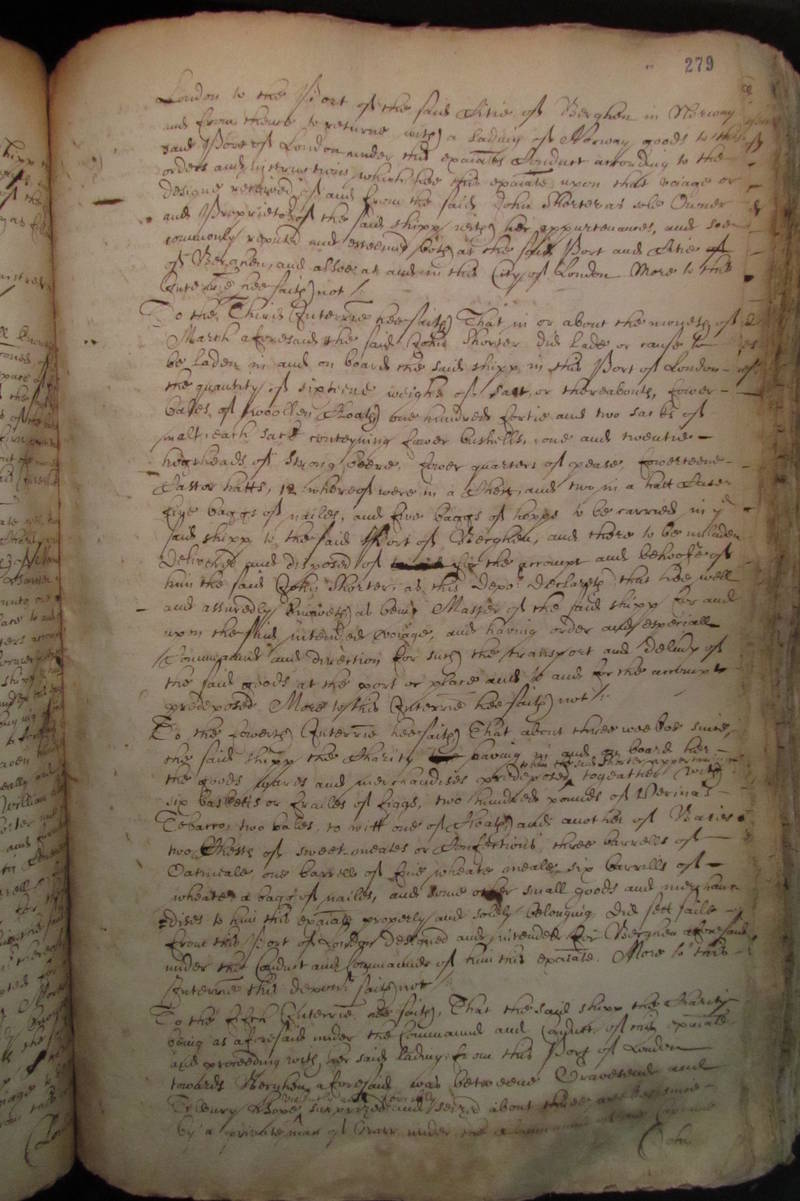 279
London to the Port of the said Citie of Berghen in Norway
and from thence to returne with a lading of Norway goods to this
said Port of London under this exãiats Conduct according to the
orders and instructions which hee this exãiate upon that voiage or
designe received of and from the said John Shorter as sole Owner
and Proprietor of the said shipp with her appurtenances, and soe
commonly reputed and esteemed both at the said Port and Citie of
of Berghen, and alsoe at and in this City of London More to this
Interrie hee saith not /.
To the Third Interrie hee saith That in or about the moneth of
March aforesaid the said John Shorter did lade or cause to
be laden in and on board the said shipp in this Port of London
the quantity of sixteene weighs of salt or thereabouts, fower
bales of woollen Cloath one hundred fortie and two sacks of
malt, each sack conteyning fower bushells, one and twentie
hogsheads of strong beere, fower quarters of pease, fowerteene
Castor hatts, 12 whereof were in a Chest, and two in a hatt Case
five baggs of nailes, and five baggs of hopps to be carried in ye
said shipp to the said Port of Berghen, and there to be unladen
delivered and disposed of the accompt and behoofe of
him the said John Shorter, as this Depot declareth that hee well
and assuredly knoweth as being Master of the said shipp for and
upon the said intended voyage, and having order and especiall
Command and direction for such the transport and delivery of
the said goods at the port or place and to and for the accompt
predeposed. More to this Interrie hee saith not /.
To the fowerth Interrie hee saith That about three weekes since,
the said shipp the Charity having in and on board her
the goods wares and merchandises predeposed, togeather with
six basketts or frailes of figgs, two hundred pounds of Verinas
Tobacco, two bales, to witt one of Cloath and another of Baies
two Chests of sweet-meates or Confections three barrells of
Oatmeale one barrell of fine wheate meale, six barrells of
wheate, a bagg of nailes, and some other small goods and merchan
dises to him this exãiate properly and solely belonging did sett saile
from this Port of London designed and intended for Berghen aforesaid
under the Conduct and Commaund of him this exãiate. More to this
Interrie this deponent saith not /
To the fifth Interrie hee saith, That the said shipp the Charity
being as aforesaid under the Command and Conduct of this exãiate
and proceeding with her said lading from this Port of London
towards Berghen aforesaid was betweene Gravesend and
Tilbury Hope surprized and seized about three weekes since
by a private man of Warr under the
John